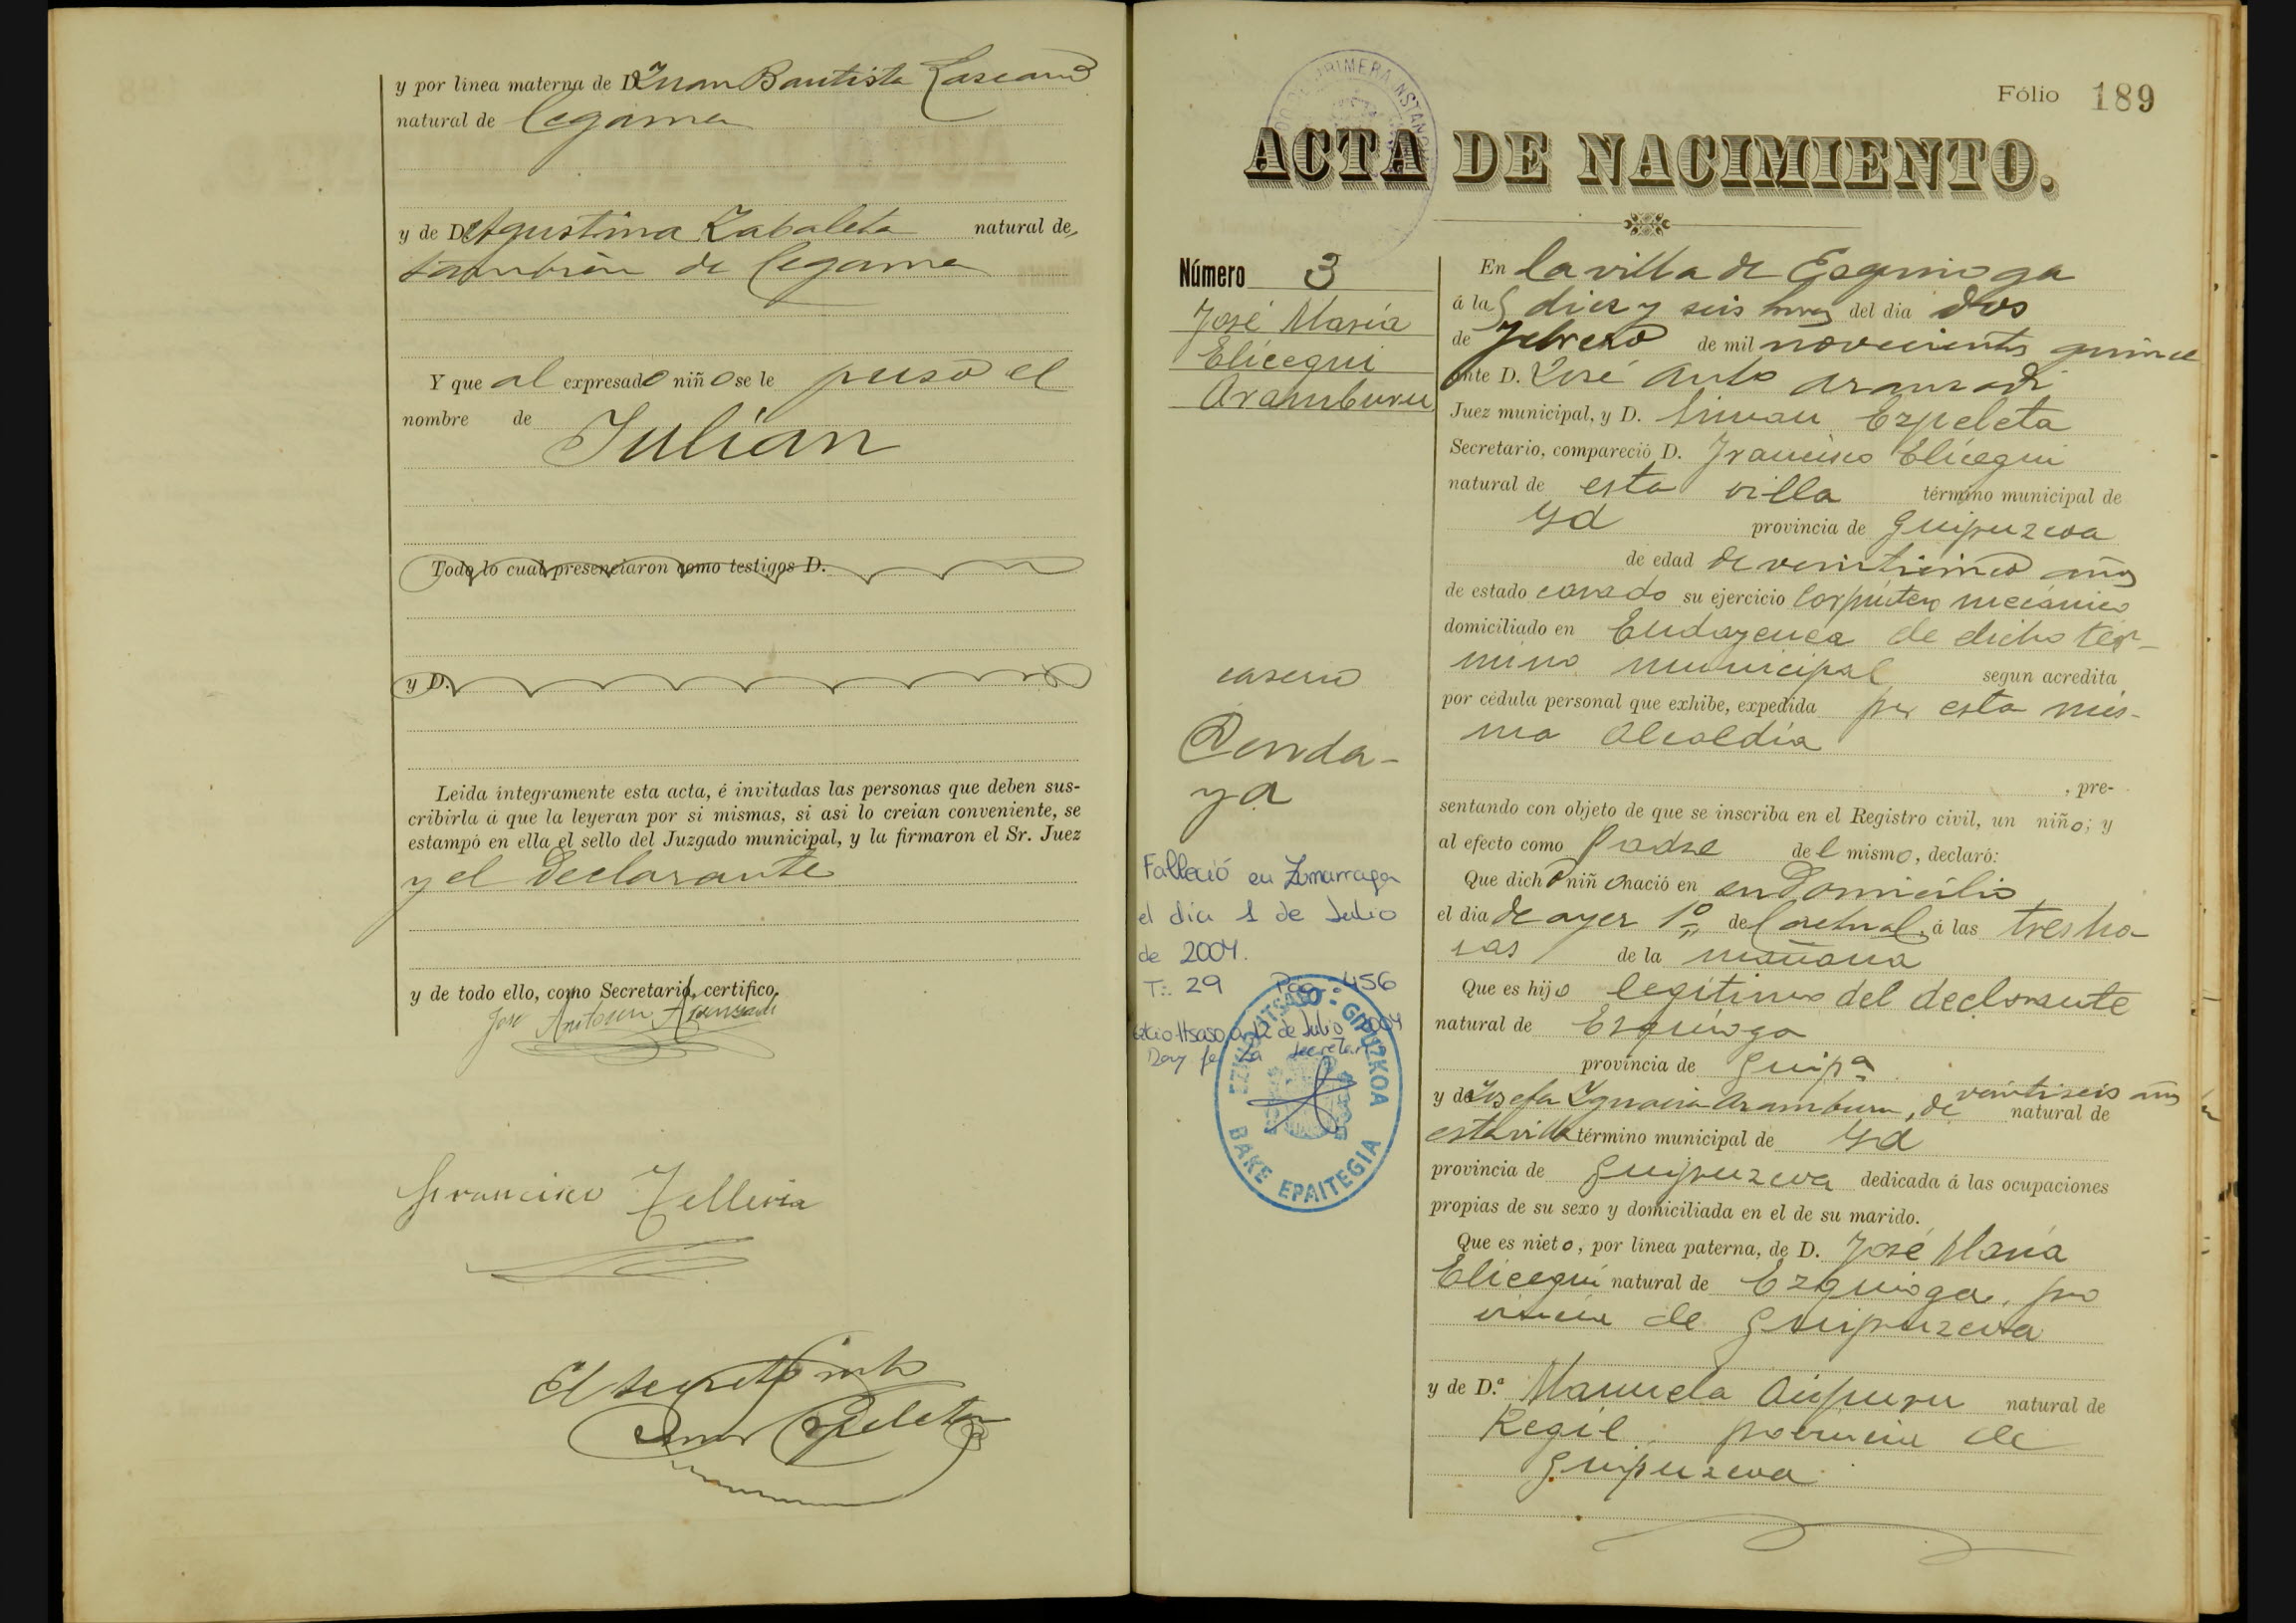 y por línea materna de D. Juan Bautista Lascano
natural de Cegama
y de Dª Agustina Zabaleta natural de
también de Cegama
Y que al expresado niño se le puso el
nombre de
Julián
Todo lo cual presenciaron como testigos D.
y D.
Leida íntegramente esta acta, é invitadas las personas que deben sus-
cribirla á que la leyeran por si mismas, si asi lo creian conveniente, se
estampó en ella el sello del Juzgado municipal, y la firmaron el Sr. Juez
y el Declarante
y de todo ello, como Secretario, certifico.
José Antonio Aranzadi
Francisco Telleria
El Secretº
Ezpeleta
Fólio 189
ACTA DE NACIMIENTO.
Número 3
José María
Elícegui
Aramburu
caserio
Denda-
ya
Falleció en Zumarraga
el día 1 de Julio
de 2004.
T: 29 Pág: 456
Ezkio-Itsaso, a 12 de Julio 2004
Doy fe La Secretaria
EZKIO-ITSASO - GIPUZKOA
BAKE EPAITEGIA
En la villa de Ezquioga
á las diez y seis horas del dia dos
de Febrero de mil novecientos quince
ante D. José Antº Aranzadi
Juez municipal, y D. Simón Ezpeleta
Secretario, compareció D. Francisco Elícegui
natural de esta villa término municipal de
Yd provincia de Guipuzcoa
de edad de veinticinco años
de estado casado su ejercicio Carpintero mecánico
domiciliado en de dicho tér-
mino municipal segun acredita
por cédula personal que exhibe, expedida por esta mis-
ma Alcaldía
, pre-
sentando con objeto de que se inscriba en el Registro civil, un niño; y
al efecto como Padre del mismo, declaró:
Que dicho niño nació en su Domicilio
el dia de ayer 1º del actual á las tres ho-
ras de la mañana
Que es hijo legítimo del declarante
natural de Ezquioga
provincia de Guipª
y de Josefa Ygnacia Aramburu, de veintiseis años natural de
esta villa término municipal de Yd
provincia de Guipuzcoa dedicada á las ocupaciones
propias de su sexo y domiciliada en el de su marido.
Que es nieto, por línea paterna, de D. José María
Elícegui natural de Ezquioga, pro
vincia de Guipuzcoa
y de D.ª Manuela Aizpuru natural de
Regil, provincia de
Guipuzcoa